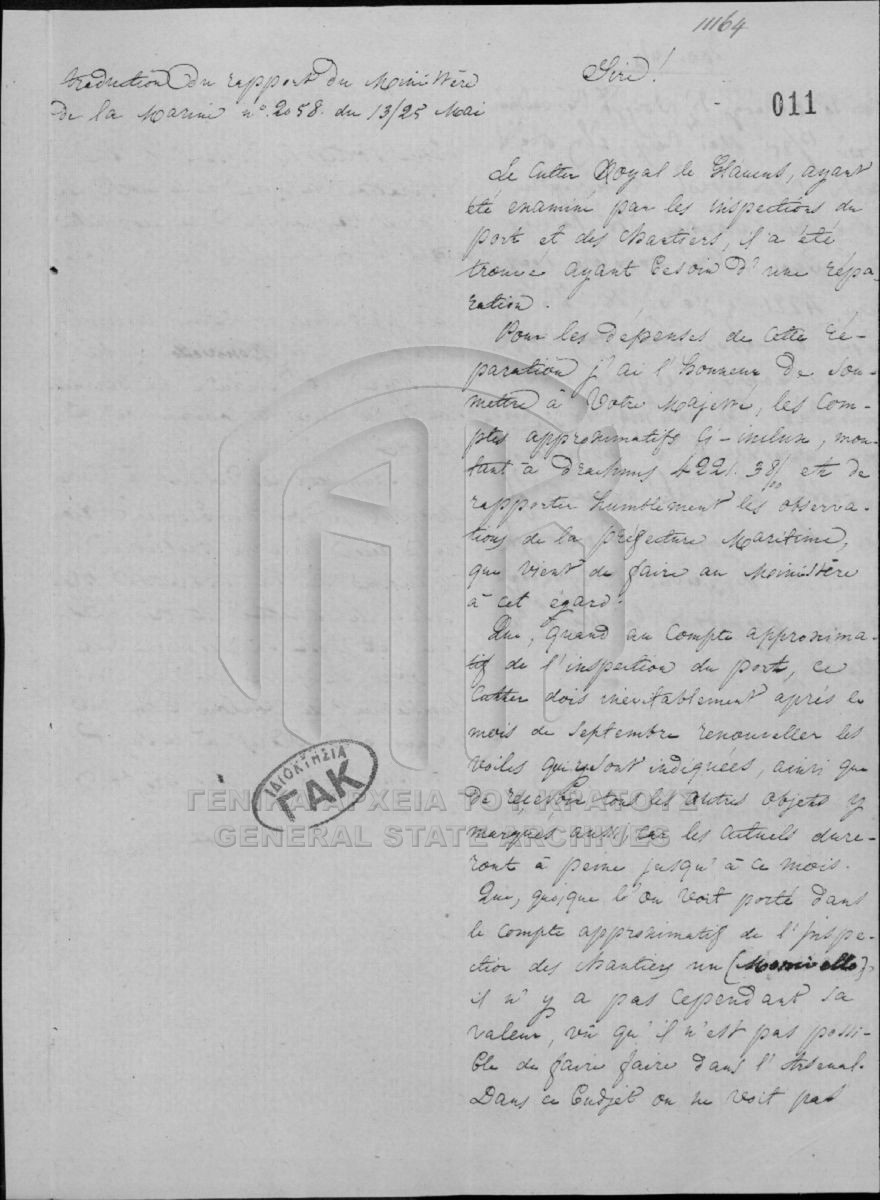 11164
traduction du rapport du Ministère
de la Marine nº 2058. du 13/25 Mai
Sire!
011
Le Cutter Royal le Glaucus, ayant
été examiné par les inspections du
port et des chantiers, il a été
trouvé ayant besoin d'une répa-
ration.
Pour les dépenses de cette ré-
paration j'ai l'honneur de sou-
mettre à Votre Majesté, les Com-
ptes approximatifs ci-inclus, mon-
tant à drachmes 4221. 38/00 et de
rapporter humblement les observa-
tions de la préfecture Maritime,
que vient de faire au Ministère
à cet égard.
Que, quand au Compte approxima-
tif de l'inspection du port, ce
Cutter dois inévitablement après le
mois de Septembre renouveller les
voiles qui sont indiquées, ainsi que
de recevoir tous les autres objets y
marqués aussi, car les actuels dure-
ront à peine jusqu'à ce mois.
Que, quoique l'on voit porté dans
le compte approximatif de l'Inspe-
ction des chantiers un
il n'y a pas cependant sa
valeur, vû qu'il n'est pas possi-
ble de faire faire dans l'Arsenal.
Dans ce Budjet on ne voit pas
ΙΔΙΟΚΤΗΣΙΑ
ΓΑΚ
ΓΕΝΙΚΑ ΑΡΧΕΙΑ ΤΟΥ ΚΡΑΤΟΥΣ
GENERAL STATE ARCHIVES